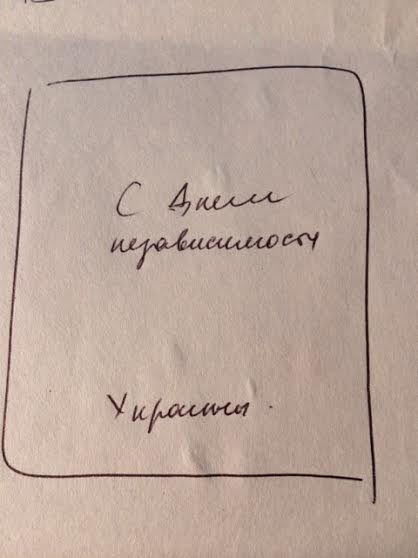 С Днем
независимости
Украины.